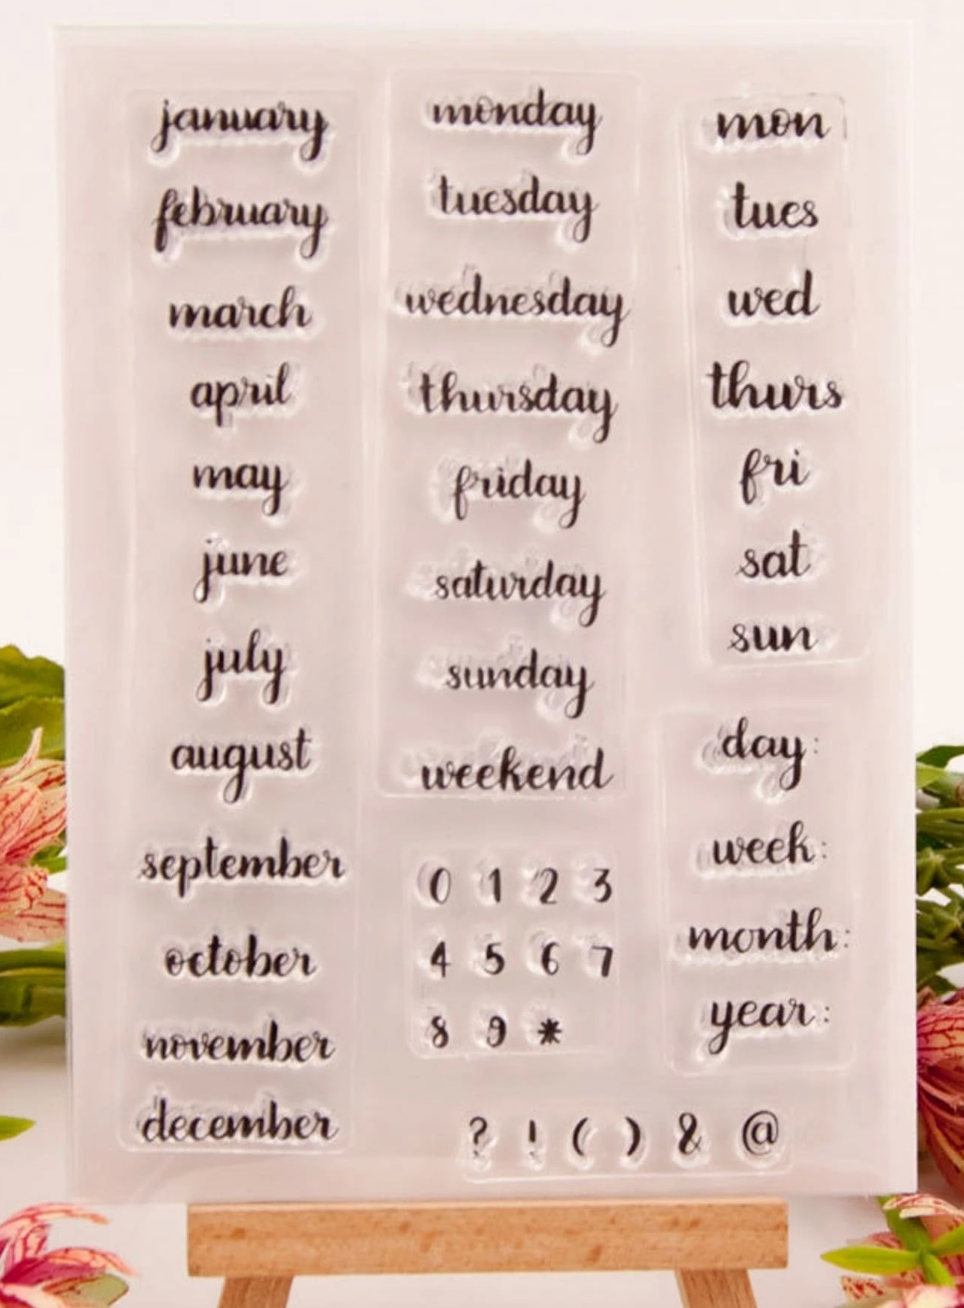 january
february
march
april
may
june
july
august
september
october
november
december
monday
tuesday
wednesday
thursday
friday
saturday
sunday
weekend
0 1 2 3
4 5 6 7
8 9 *
mon
tues
wed
thurs
fri
sat
sun
day:
week:
month:
year:
? ! ( ) & @